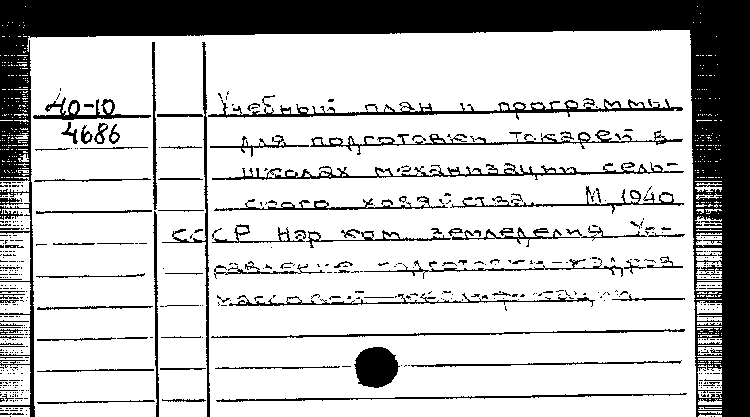 40-10 Учебный план и программы
4686 для подготовки токарей в
школах механизации сель-
ского хозяйства М, 1940
СССР Нар ком земледелия Уп-
равление подготовки кадров
массовой квалификации